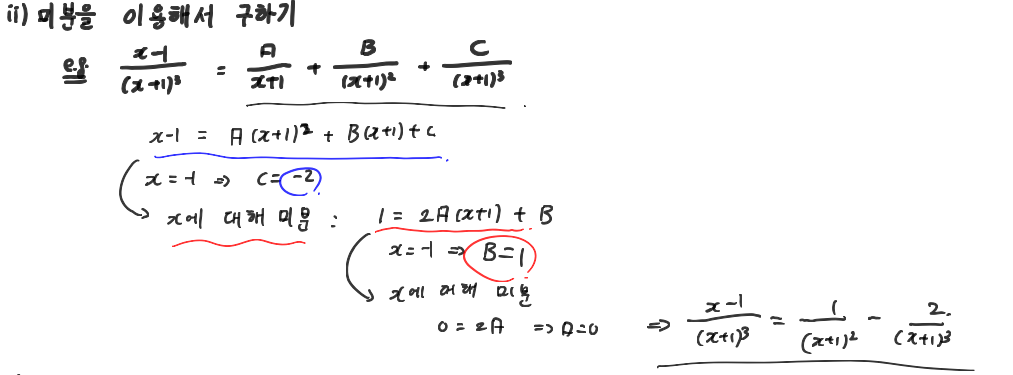 ii) 미분을 이용해서 구하기
e.g. (x-1)/(x+1)³ = A/(x+1) + B/(x+1)² + C/(x+1)³
x-1 = A(x+1)² + B(x+1) + C
x = -1 ⇒ C = -2
x에 대해 미분 : 1 = 2A(x+1) + B
x = -1 ⇒ B = 1
x에 대해 미분
0 = 2A ⇒ A = 0 ⇒ (x-1)/(x+1)³ = 1/(x+1)² - 2/(x+1)³